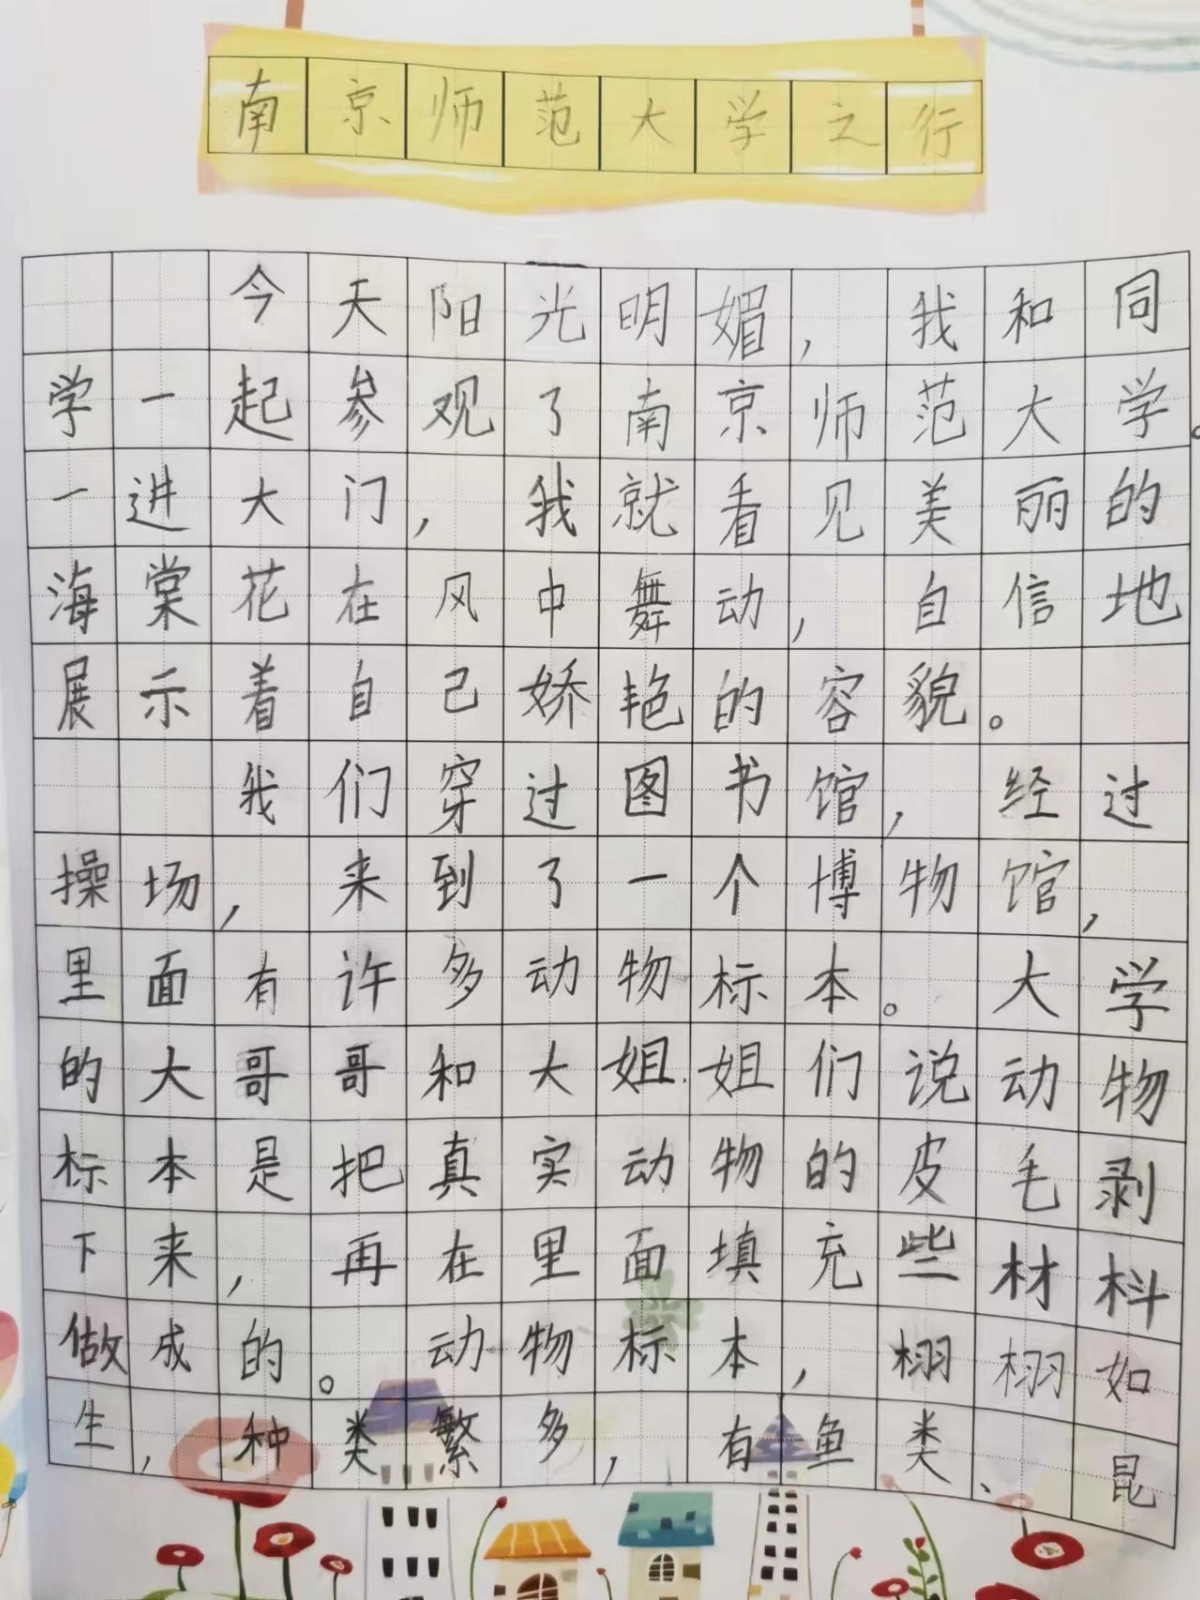 南京师范大学之行
今天阳光明媚，我和同
学一起参观了南京师范大学。
一进大门，我就看见美丽的
海棠花在风中舞动，自信地
展示着自己娇艳的容貌。
我们穿过图书馆，经过
操场，来到了一个博物馆，
里面有许多动物标本。大学
的大哥哥和大姐姐们说动物
标本是把真实动物的皮毛剥
下来，再在里面填充些材料
做成的。动物标本，栩栩如
生，种类繁多，有鱼类、昆